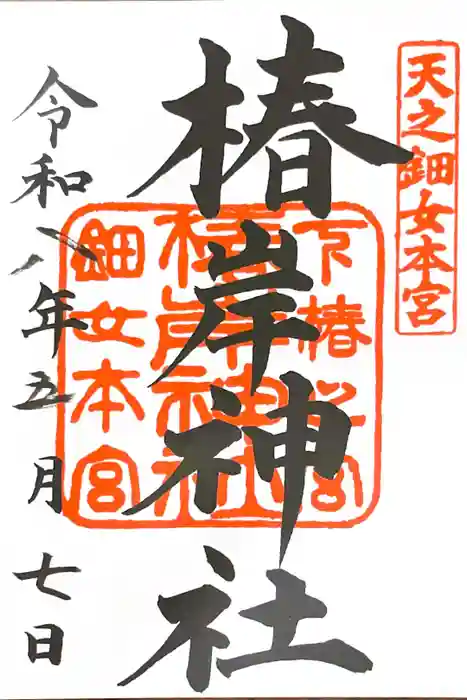 天之鈿女本宮
椿岸神社
下椿宮
椿岸神社
鈿女本宮
令和八年五月七日